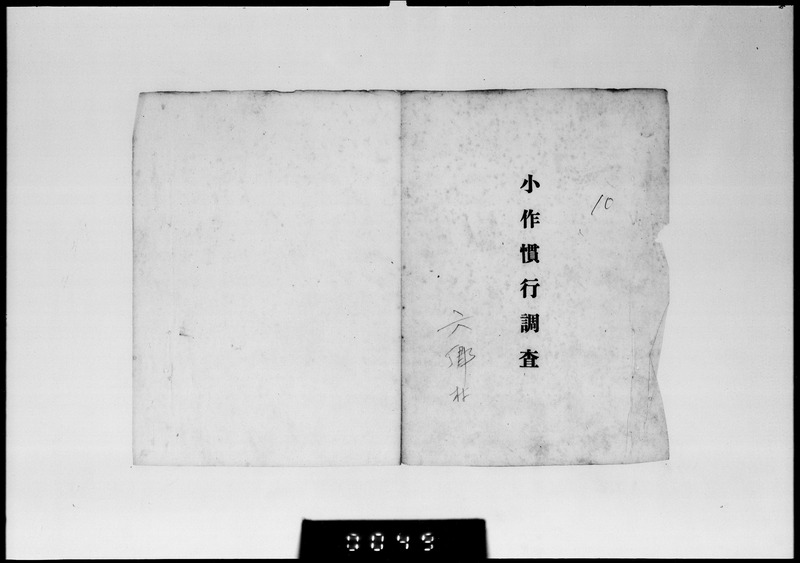 10
小作慣行調査
六郷村
0049